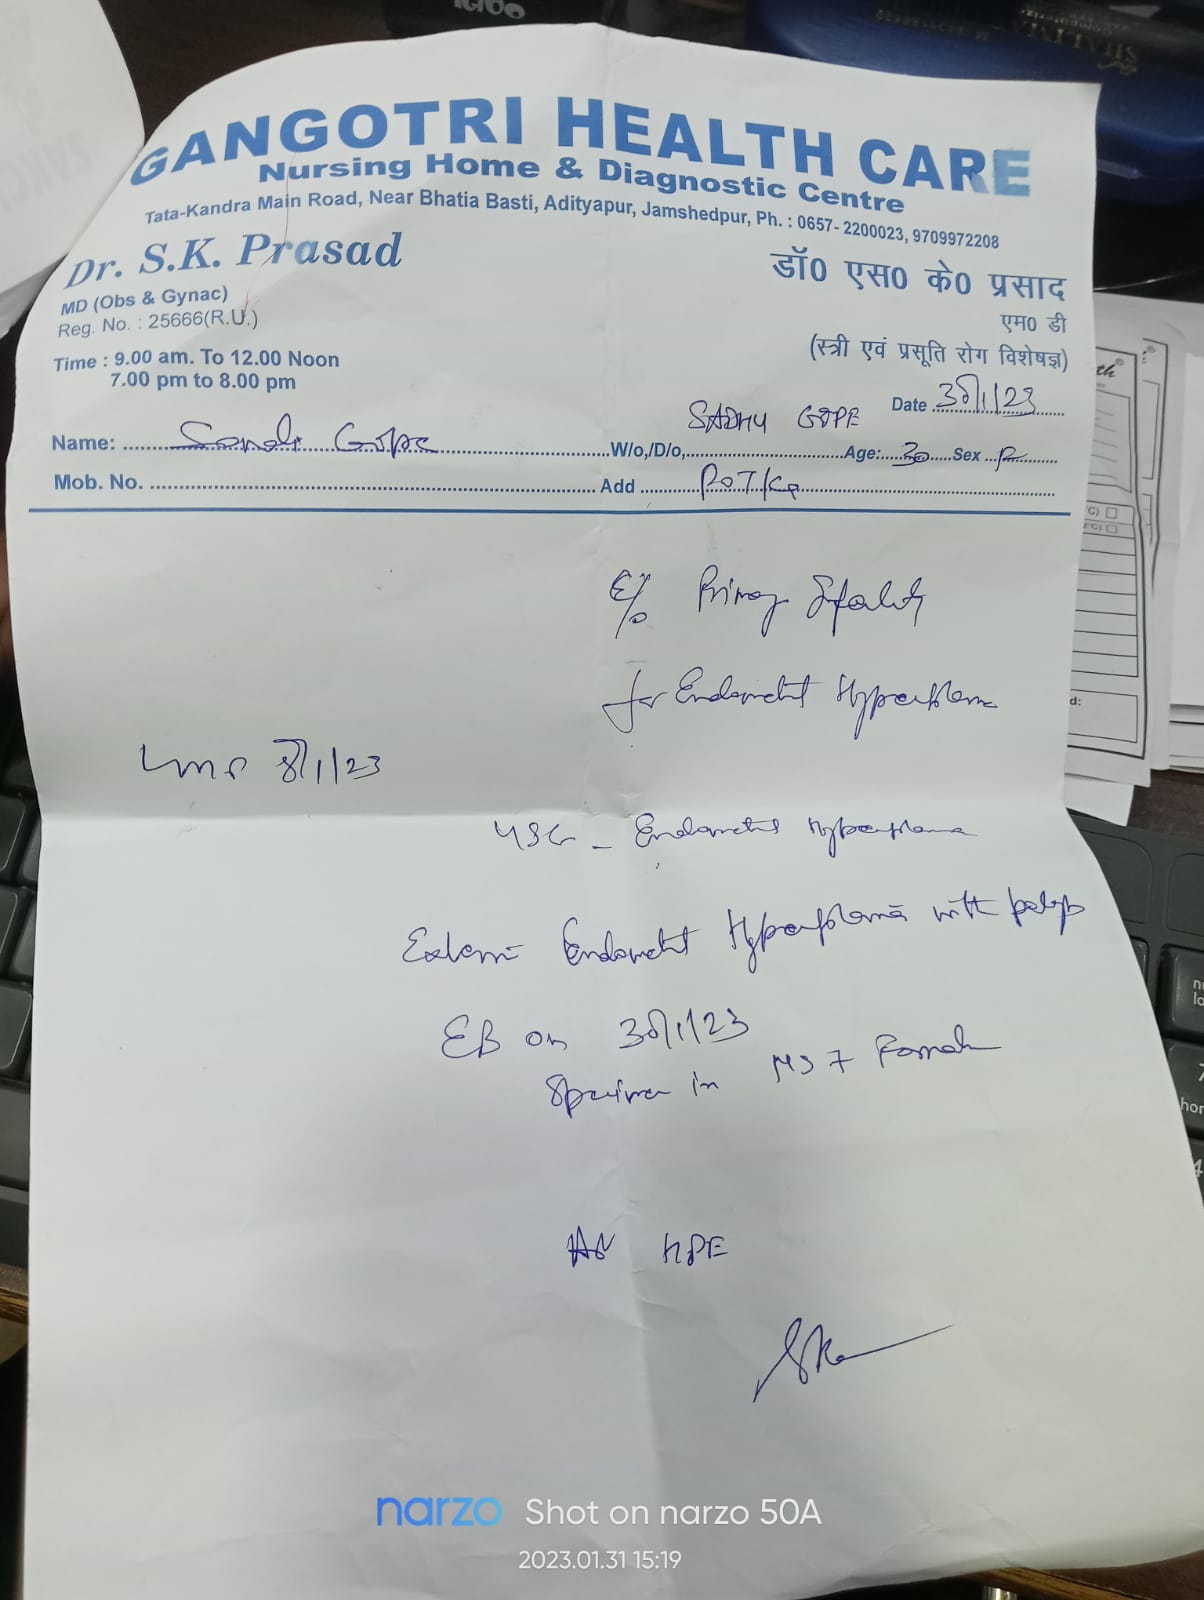 GANGOTRI HEALTH CARE
Nursing Home & Diagnostic Centre
Tata-Kandra Main Road, Near Bhatia Basti, Adityapur, Jamshedpur, Ph. : 0657- 2200023, 9709972208
Dr. S.K. Prasad
MD (Obs & Gynac)
Reg. No. : 25666(R.U.)
Time : 9.00 am. To 12.00 Noon
7.00 pm to 8.00 pm
डॉ0 एस0 के0 प्रसाद
एम0 डी
(स्त्री एवं प्रसूति रोग विशेषज्ञ)
Date 30/1/23
Name: Gope W/o,/D/o, SADHU GOPE Age: 30 Sex F
Mob. No. Add POTKA
Primary Infertility
for Endometrial Hyperplasia
/1/23
USG - Endometrial Hyperplasia
Endometrial Hyperplasia with polyp
EB on 30/1/23
Specimen in
HPE
narzo Shot on narzo 50A
2023.01.31 15:19